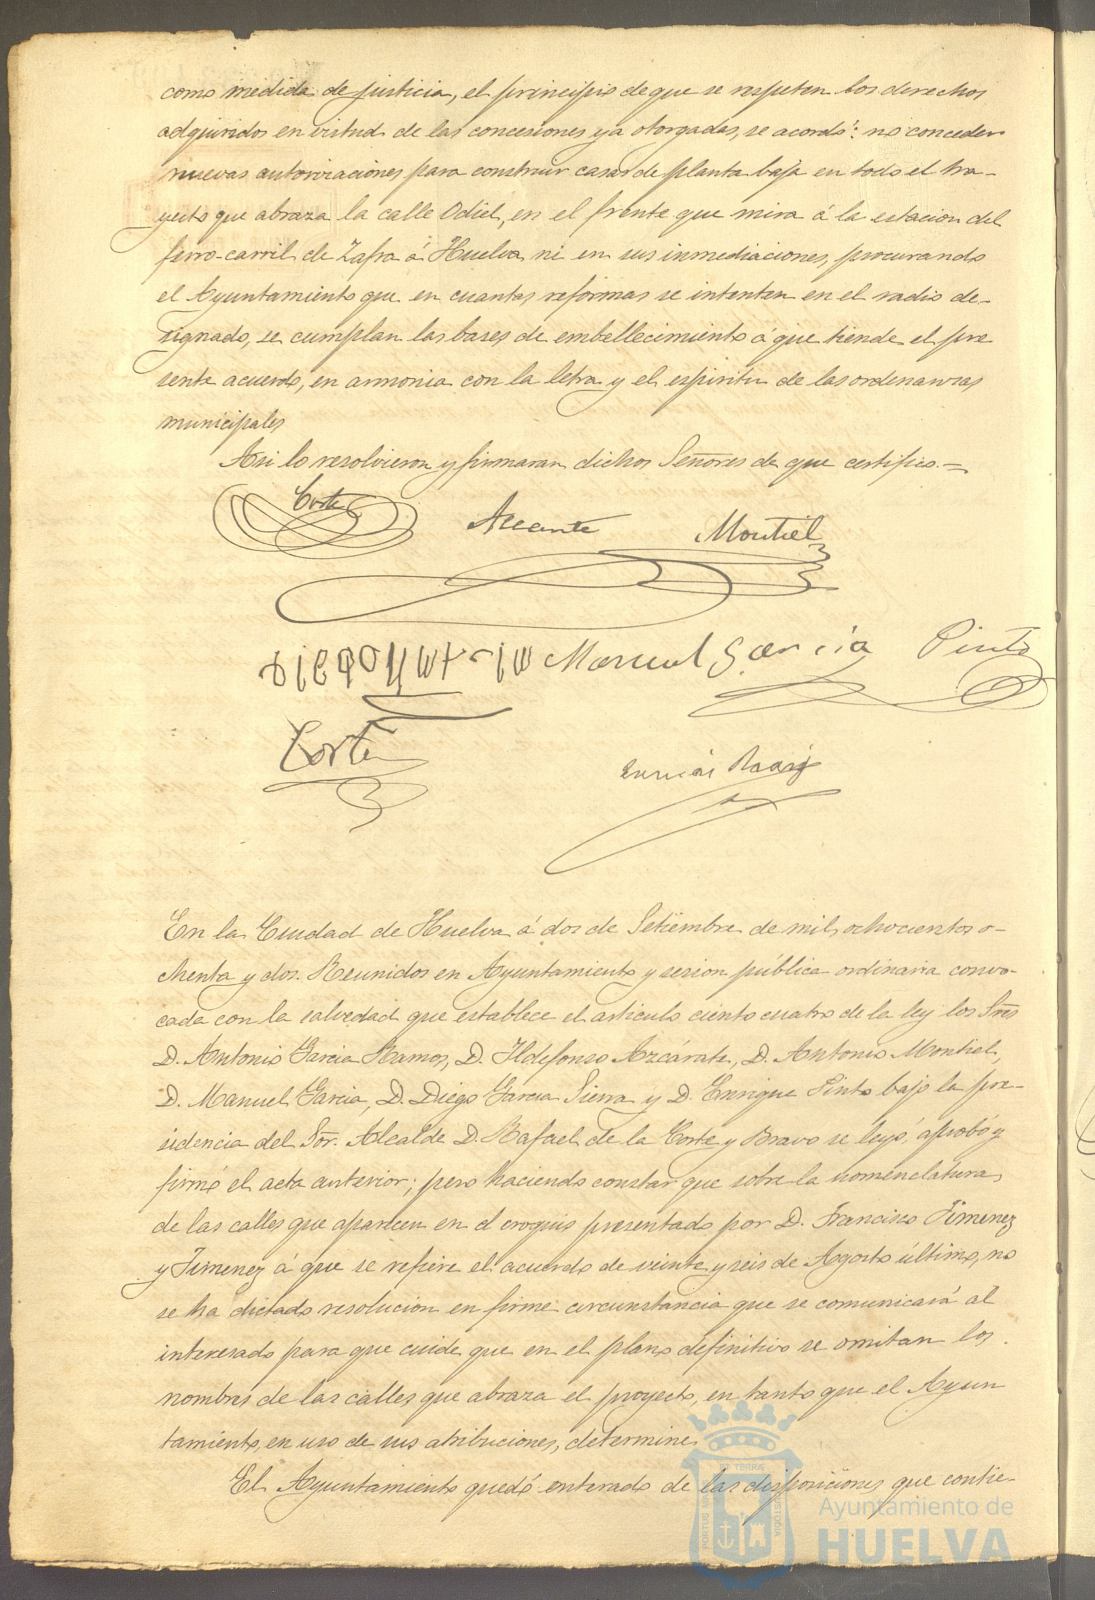 como medida de justicia, el principio de que se respeten los derechos
adquiridos en virtud de las concesiones ya otorgadas, se acordó: no conceder
nuevas autorizaciones para construir casas de planta baja en todo el tra-
yecto que abraza la calle Odiel, en el frente que mira á la estacion del
ferro-carril de Zafra á Huelva ni en sus inmediaciones, procurando
el Ayuntamiento que en cuantas reformas se intenten en el radio de-
signado, se cumplan las bases de embellecimiento á que tiende el pre
sente acuerdo, en armonia con la letra y el espiritu de las ordenanzas
municipales
Asi lo resolvieron y firmaran dichos Señores de que certifico.=
Corte Montiel
Manuel Garcia Pinto
Corte
En la Ciudad de Huelva á dos de Setiembre de mil ochocientos o-
chenta y dos. Reunidos en Ayuntamiento y sesion pública ordinaria convo-
cada con la salvedad que establece el articulo ciento cuatro de la ley los Sres
D. Antonio Garcia Ramos, D. Ildefonso Azcárate, D. Antonio Montiel,
D. Manuel Garcia, D. Diego Garcia Sierra y D. Enrique Pinto bajo la pre-
sidencia del Sor. Alcalde D. Rafael de la Corte y Bravo se leyó, aprobó y
firmó el acta anterior; pero haciendo constar que sobre la nomenclatura
de las calles que aparecen en el croquis presentado por D. Francisco Jimenez
y Jimenez á que se refiere el acuerdo de veinte y seis de Agosto último, no
se ha dictado resolucion en firme circunstancia que se comunicará al
interesado para que cuide que en el plano definitivo se omitan los
nombres de las calles que abraza el proyecto, en tanto que el Ayun
tamiento, en uso de sus atribuciones, determine.
El Ayuntamiento quedó enterado de las disposiciones que contie-
Ayuntamiento de
HUELVA